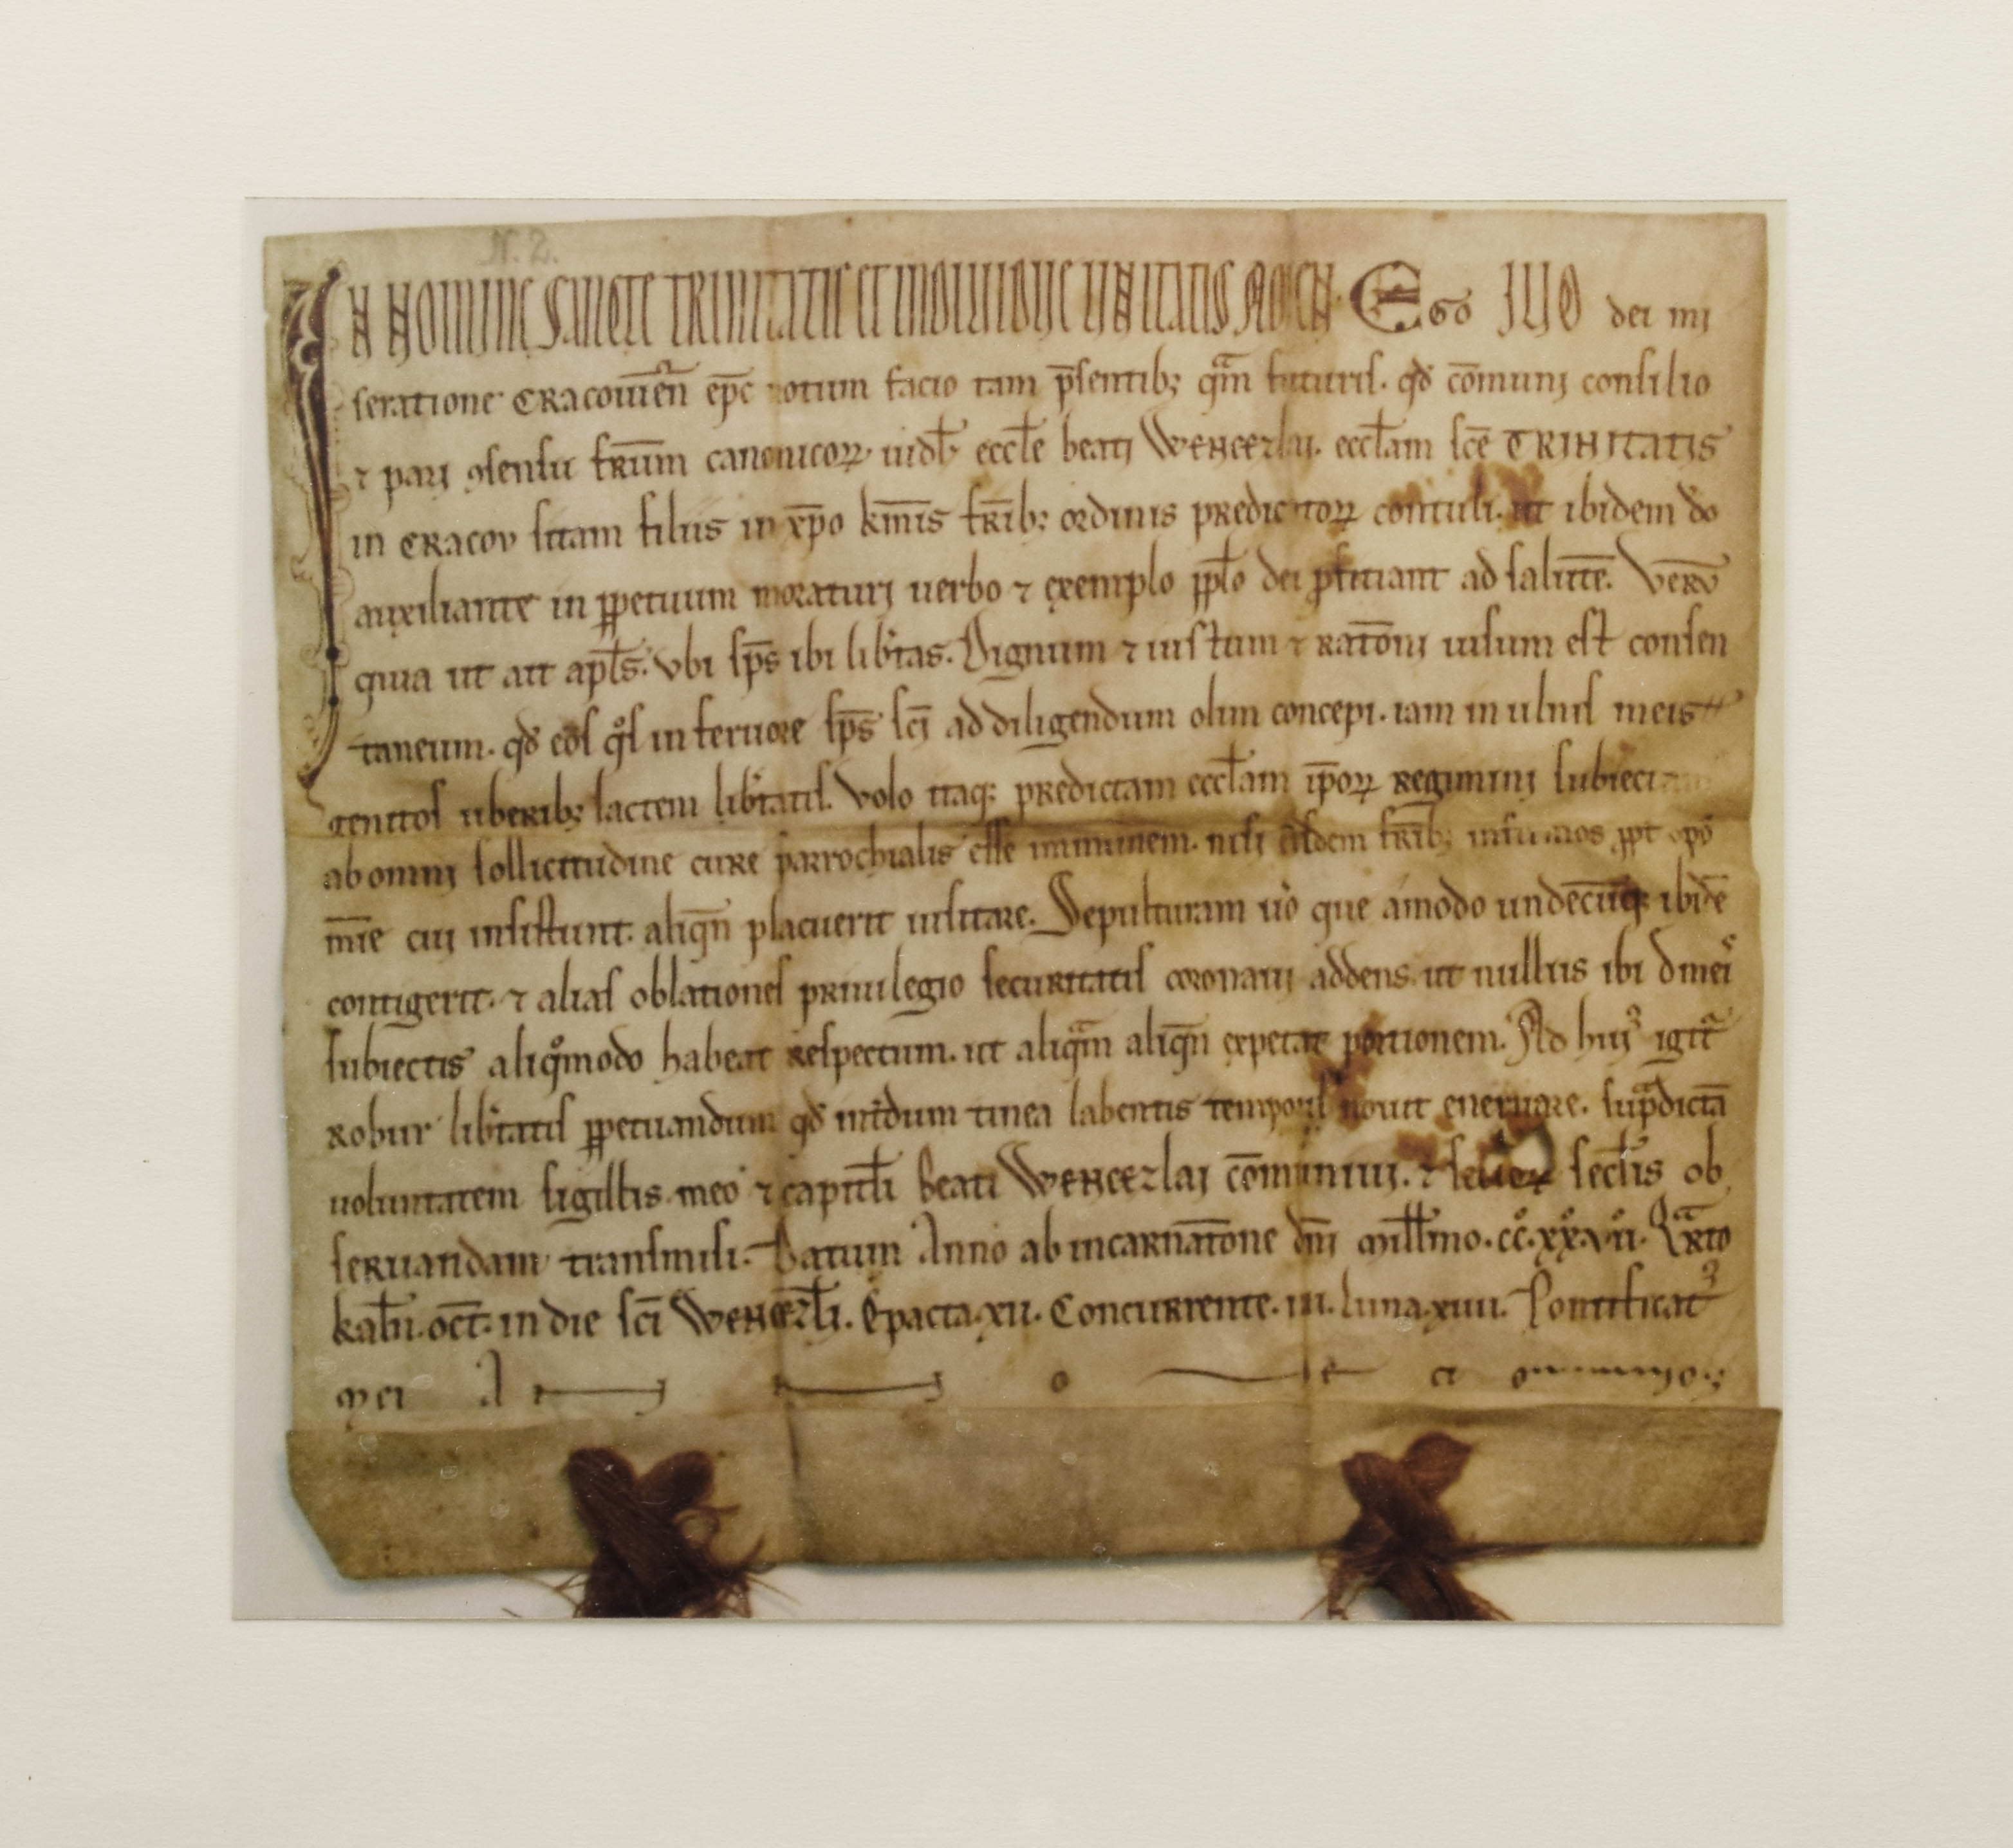 N. 2.
IN NOMINE SANCTE TRINITATIS ET INDIVIDUE UNITATIS AMEN. Ego IUO dei mi
seratione CRacouiēn ep̄c notum facio tam p̄sentib; qm̄ futuris. qd̄ cōmuni consilio
⁊ pari ꝯsensu fr̄um canonicoꝝ. eccl̄e beati Wencezlai. eccl̄am sc̄e TRINITATIS
in CRacov sitam filiis in xp̄o km̄is fr̄ib; ordinis predicatoꝝ contuli. ut ibidem dō
auxiliante in ꝑpetuum moraturi uerbo ⁊ exemplo ppl̄o dei ꝓficiant ad salutē. Verū
quia ut ait apl̄s. vbi sp̄s ibi lib̄tas. Dignum ⁊ iustum ⁊ ratōni uisum est consen
taneum. qd̄ eos qͦs in feruore sp̄s sc̄i ad diligendum olim concepi. iam in ulnis meis
genitos uberib; lactem lib̄tatis. Volo itaq; predictam eccl̄am ip̄oꝝ regimini subiectam
ab omni sollicitudine cure parrochialis esse immunem. nisi eisdem fr̄ib; infirmos ꝓpt opō
m̄ie cui insistunt. aliqn̄ placuerit uisitare. Sepulturam ūo que amodo undecūq; ibidē
contigerit. ⁊ alias oblationes priuilegio securitatis coronaui addens. ut nullus ibi dīnei
subiectis aliqͦmodo habeat respectum. ut aliqm̄ aliqn̄ expetat portionem. Ad huiꝰ igit̄
robur lib̄tatis ꝑpetuandum qd̄ int̄dum tinea labentis temporis nouit eneruare. sup̄dictā
uoluntatem sigillis meo ⁊ capitl̄i beati Wencezlai cōmuniui. ⁊ secl̄is ob
seruandam transmisi. Datum Anno ab incarnatōne dn̄i mill̄mo. cc̊. xx̊. vii̊. Qͣrto
kal̄n. oct̄. in die sc̄i Wencezl̄i. Epacta. xii. Concurrente. iiii. Luna. xiiii. Pontificatꝰ
mei